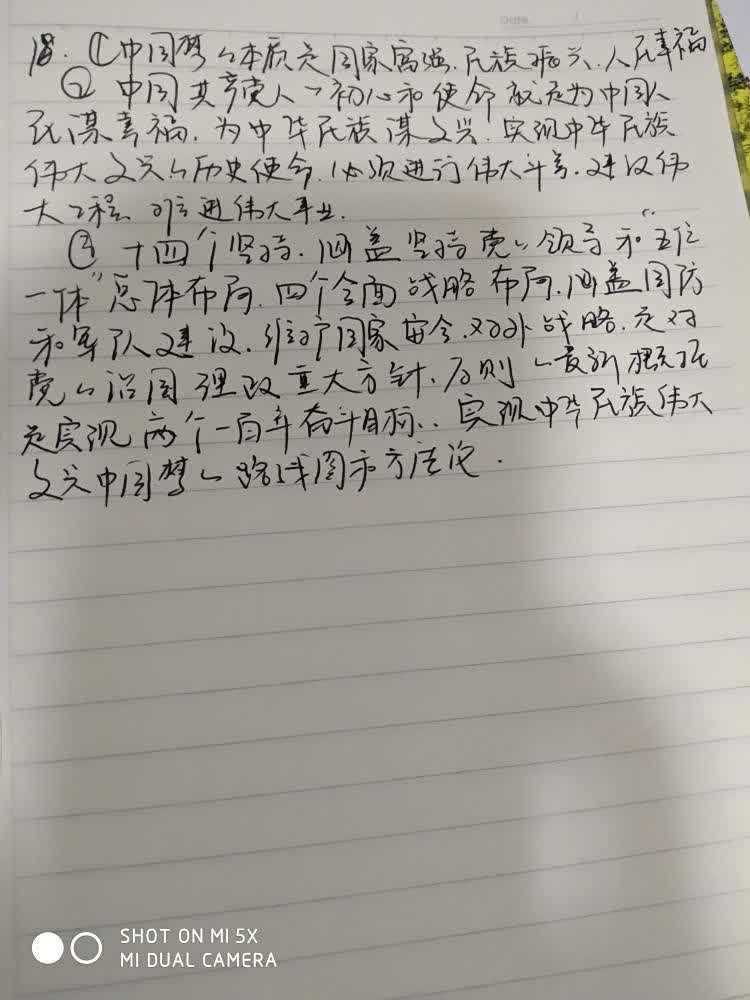 Date. /
18. ①中国梦的本质是国家富强、民族振兴、人民幸福
② 中国共产党人的初心和使命就是为中国人
民谋幸福，为中华民族谋复兴，实现中华民族
伟大复兴的历史使命，必须进行伟大斗争，建设伟
大工程，推进伟大事业.
③ 十四个坚持，涵盖坚持党的领导和“五位
一体”总体布局，四个全面战略布局，涵盖国防
和军队建设，维护国家安全，对外战略，是对
党的治国理政重大方针、原则的最新概括
是实现两个一百年奋斗目标，实现中华民族伟大
复兴中国梦的路线图和方法论.
SHOT ON MI 5X
MI DUAL CAMERA